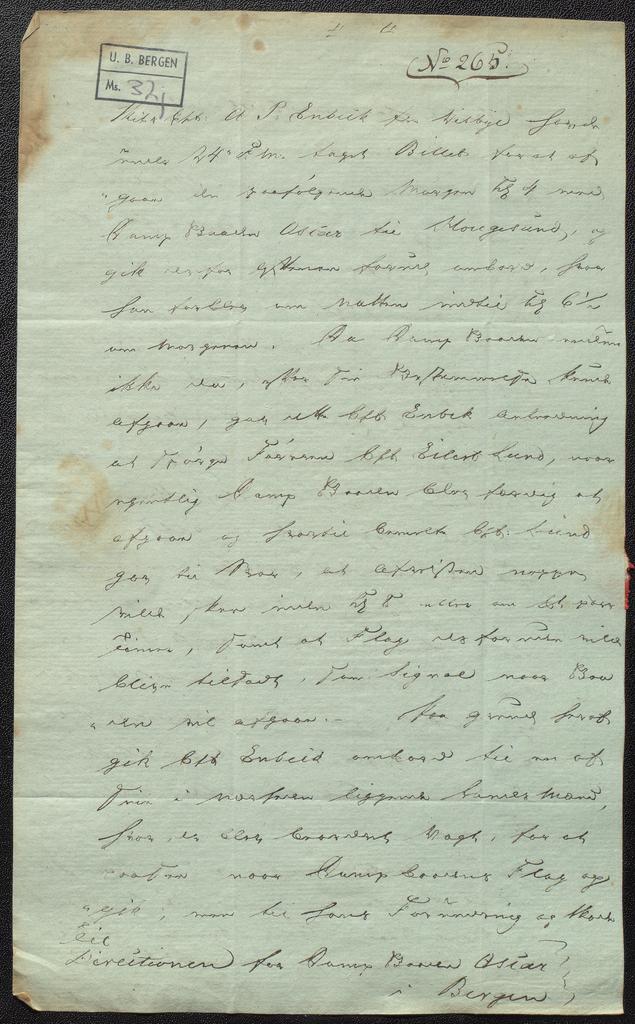 No 265.
U. B. BERGEN
Ms. 32j
Skibs Cpt. A P. Enbeck fra Wisbye havde
24de d.M. taget Billet for at af-
gaae den paafølgende Morgen kl 4 med
Damp Baaden Oscar til Hougesund, og
gik derfor Aftenen forud ombord, hvor
han forblev om Natten indtil kl 6 1/2
om Morgenen. Da Damp Baaden endnu
ikke da, efter sin Bestemmelse kunde
afgaae, gav dette Cpt Enbek Anledning
at spørge Føreren Cpt Eilert Lund, naar
egentlig Damp Baaden blev færdig at
afgaae og hvortil bemeldte Cpt. Lund
gav til Svar, at Afreisen neppe
vilde skee inden kl 8 eller om et par
Timer, samt at Flag desforuden vilde
blive tilsadt, som Signal naar Baa-
den vil afgaae. - Paa grund heraf
gik Cpt Enbeck ombord til en af
sine i liggende Landsmænd,
hvor der blev Vagt, for at
naar Damp Baadens Flag op-
gik, men til hans Forundring og Skade
Til
Directionen for Damp Baaden Oscar
i Bergen